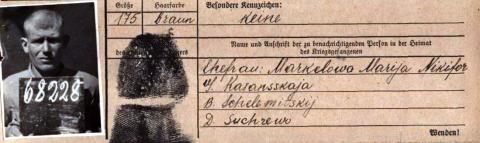 Größe
Haarfarbe
Besondere Kennzeichen:
175
braun
Keine
Name und Anschrift der zu benachrichtigenden Person in der Heimat
des Kriegsgefangenen
Ehefrau: Markelowa Marija Nikifor
Kasansskaja
D. Suchrewo
Wenden!
68228